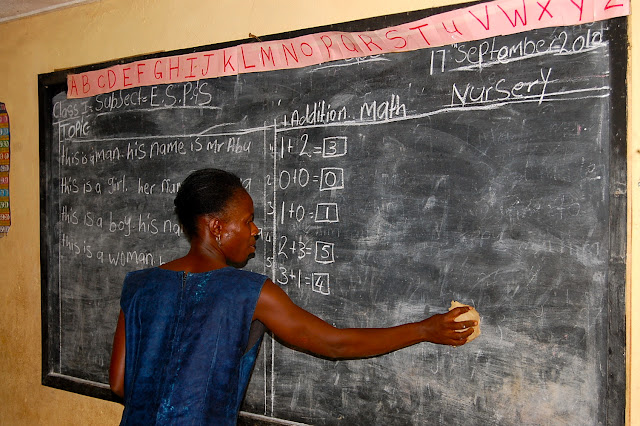 A B C D E F G H I J K L M N O P Q R S T U V W X Y Z
17th September 2010
Class 1. Subject = E.S.P.S
Nursery
TOPIC
this is a man. his name is Mr Abu
this is a girl. her
this is a boy. his
this is a woman.
+ Addition. Math
1 1+2=3
2 0+0=0
3 1+0=1
4 2+3=5
5 3+1=4